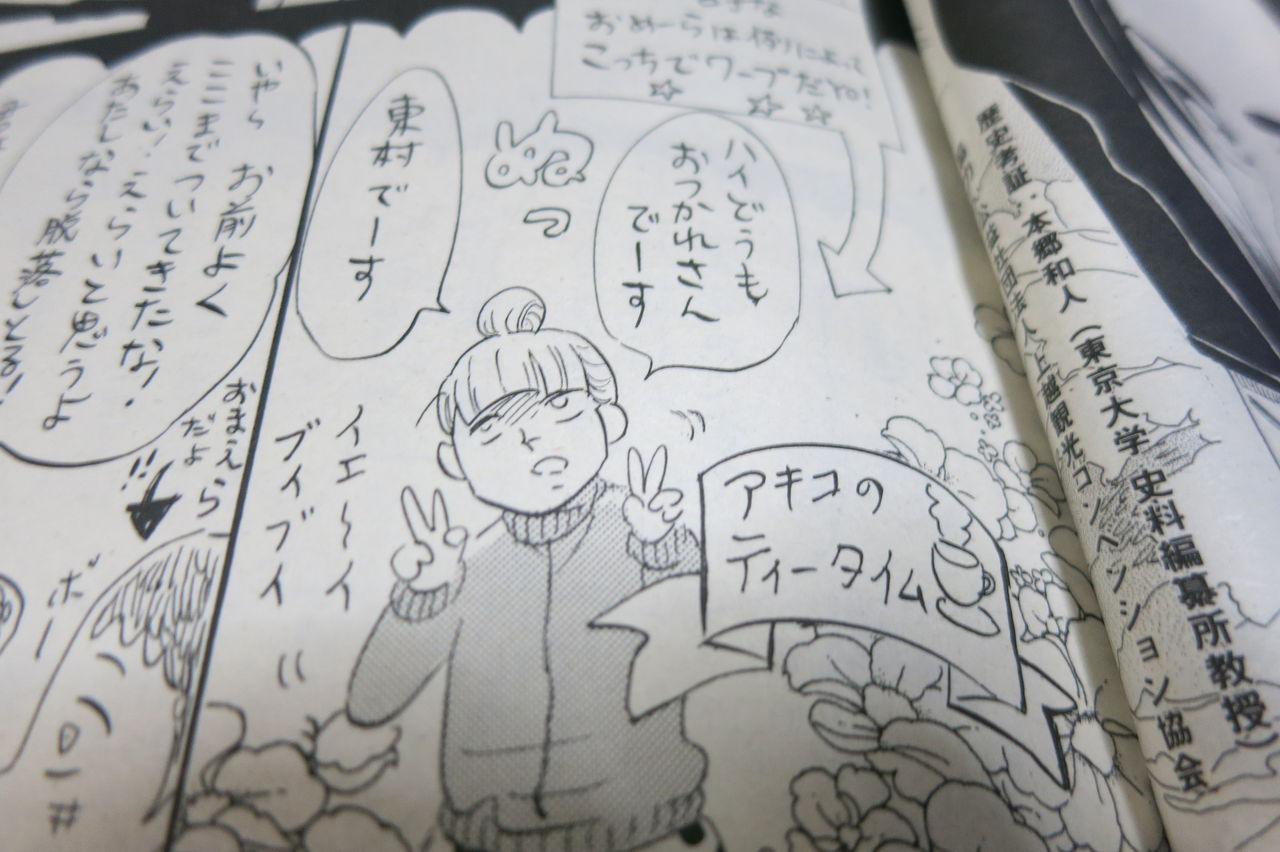 歴史考証・本郷和人(東京大学 史料編纂所教授)
社団法人上越観光コンベンション協会
おめーらは
こっちでワープだYO!
☆☆☆
ハイどうも
おつかれさん
でーす
東村でーす
アキコの
ティータイム
イエ〜イ
ブイブイ
いやら お前よく
ここまでついてきたな!
えらい!えらいと思うよ
あたしなら脱落しとる!
おまえら
だよ
!!
ボー